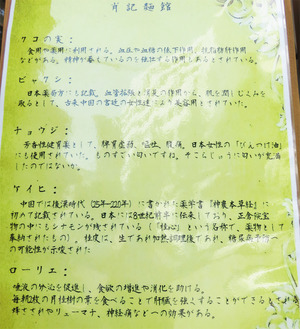 肖記麺館
クコの実：
食用や薬用に利用される。血圧や血糖の低下作用、抗脂肪肝作用
などがある。精神が萎えているのを強壮する作用もあるとされている。
ビャクシ：
日本薬局方にも記載。血管拡張と消炎の作用から、肌を潤しむくみを
取るとして、古来中国の宮廷の女性達により美容用とされていた。
チョウジ：
芳香性健胃薬として、脾胃虚弱、嘔吐、腹痛、日本女性の「びんつけ油」
にも使用されていた。ものすごい匂いですね。そこらじゅうに匂いが充満
したのではないか。
ケイヒ：
中国では後漢時代（25年-220年）に書かれた薬学書「神農本草経」に
初めて記載されている。日本には8世紀前半に伝来しており、正倉院宝
物の中にもシナモンが残されている（「桂心」という名称で、薬物として
奉納されたもの）。桂皮は、生であれ加熱調理後であれ、糖尿病予防への
可能性が示唆された
ローリエ：
唾液の分泌を促進し、食欲の増進や消化を助ける。
毎晩数枚の月桂樹の葉を食べることで肝臓を強くすることができるとされる
煒されやリューマチ、神経痛などへの効果がある。